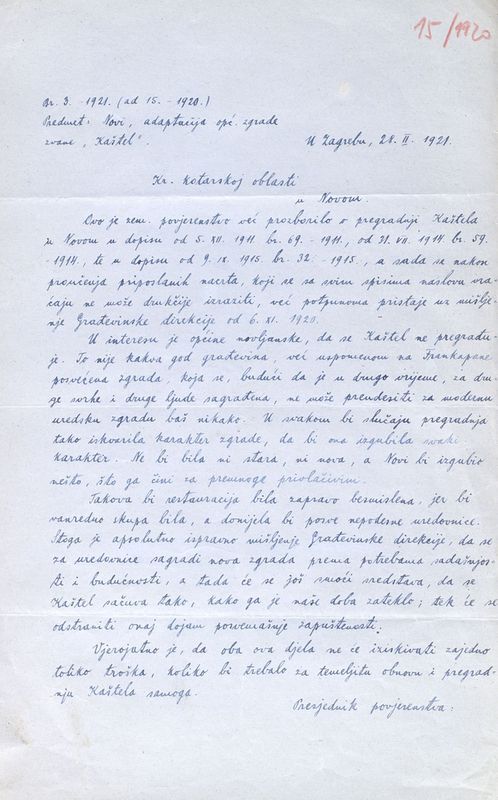 15/1920
Br. 3. - 1921. (ad 15. - 1920.)
Predmet: Novi, adaptacija opć. zgrade
zvane „Kaštel".
U Zagrebu, 28. II. 1921.
Kr. kotarskoj oblasti
u Novom.
Ovo je zem. povjerenstvo već prozborilo o pregradnji Kaštela
u Novom u dopisu od 5. XII. 1911. br. 69. - 1911., od 31. VII. 1914. br. 59.
- 1914., te u dopisu od 9. IX. 1915. br. 32. - 1915., a sada se nakon
proučenja priposlanih nacrta, koji se sa svim spisima naslovu vra-
ćaju ne može drukčije izraziti, već potpunoma pristaje uz mišlje-
nje Građevinske direkcije od 6. XI. 1920.
U interesu je općine novljanske, da se Kaštel ne pregrađu-
je. To nije kakva god građevina, već uspomenom na Frankapane
posvećena zgrada, koja se, budući da je u drugo vrijeme, za dru-
ge svrhe i druge ljude sagrađena, ne može preudesiti za modernu
uredsku zgradu baš nikako. U svakom bi slučaju pregradnja
tako iskvarila karakter zgrade, da bi ona izgubila svaki
karakter. Ne bi bila ni stara, ni nova, a Novi bi izgubio
nešto, što ga čini za premnoge privlačivim.
Takova bi restauracija bila zapravo besmislena, jer bi
vanredno skupa bila, a donijela bi posve nepodesne uredovnice.
Stoga je apsolutno ispravno mišljenje Građevinske direkcije, da se
za uredovnice sagradi nova zgrada prema potrebama sadašnjos-
ti i budućnosti, a tada će se još smoći sredstava, da se
Kaštel sačuva tako, kako ga je naše doba zateklo; tek će se
odstraniti onaj dojam posvemašnje zapuštenosti.
Vjerojatno je, da oba ova djela ne će iziskivati zajedno
toliko troška, koliko bi trebalo za temeljitu obnovu i pregrad-
nju Kaštela samoga.
Presjednik povjerenstva: